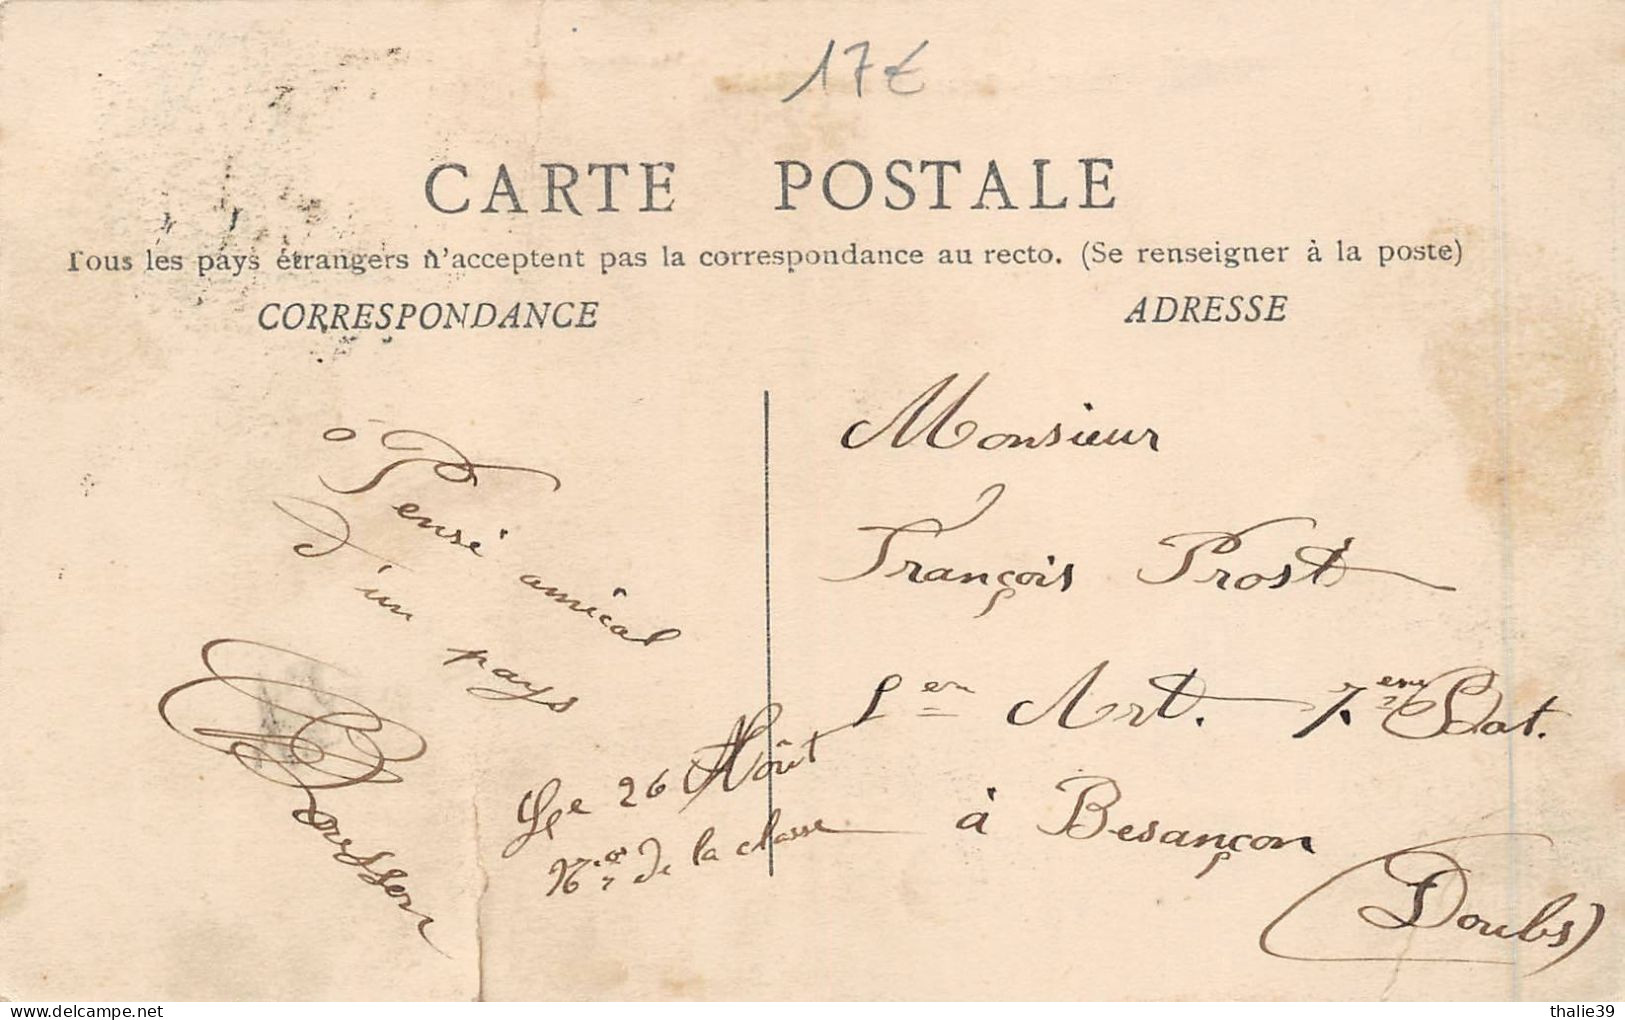 17€
CARTE POSTALE
Tous les pays étrangers n'acceptent pas la correspondance au recto. (Se renseigner à la poste)
CORRESPONDANCE
Pensé amical
d'un pays
Le 26 Août
de la classe
ADRESSE
Monsieur
François Prost
Art. 7.eme Bat.
à Besançon
(Doubs)
delcampe.net
thalie39